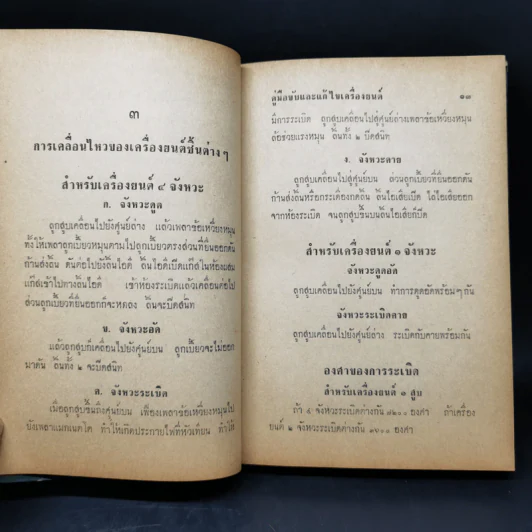 ๓
การเคลื่อนไหวของเครื่องยนต์ชิ้นต่าง ๆ
สำหรับเครื่องยนต์ ๔ จังหวะ
ก. จังหวะดูด
ลูกสูบเคลื่อนไปยังศูนย์ล่าง แล้วเพลาข้อเหวี่ยงหมุน
ทั้งให้เพลาลูกเบี้ยวหมุนตามไปลูกเบี้ยวตรงส่วนที่ยื่นออกดัน
ก้านส่งลิ้น ดันต่อไปยังลิ้นไอดี ลิ้นไอดีเปิดแก๊สในห้องผสม
แก๊สเข้าไปทางลิ้นไอดี เข้าห้องระเบิดแล้วเคลื่อนต่อไป
ส่วนลูกเบี้ยวที่ยื่นออกก็จะหดลง ลิ้นจะปิดสนิท
ข. จังหวะอัด
แล้วลูกสูบก็เคลื่อนไปยังศูนย์บน ลูกเบี้ยวจะไม่ออก
มาดัน ลิ้นทั้ง ๒ จะปิดสนิท
ค. จังหวะระเบิด
เมื่อลูกสูบขึ้นถึงศูนย์บน เฟืองเพลาข้อเหวี่ยงหมุนไป
ยังเพลาแมกเนตโต ทำให้เกิดประกายไฟที่หัวเทียน ทำให้
คู่มือขับและแก้ไขเครื่องยนต์ ๑๓
มีการระเบิด ลูกสูบเคลื่อนไปสู่ศูนย์ล่างเพลาข้อเหวี่ยงหมุน
ล้อช่วยแรงหมุน ลิ้นทั้ง ๒ ปิดสนิท
ง. จังหวะคาย
ลูกสูบเคลื่อนไปสู่ศูนย์บน ส่วนลูกเบี้ยวที่ยื่นออกดัน
ก้านส่งลิ้นหรือกระเดื่องกดลิ้น ลิ้นไอเสียเปิด ไล่ไอเสียออก
จากห้องระเบิด จนลูกสูบขึ้นบนลิ้นไอเสียก็ปิด
สำหรับเครื่องยนต์ ๑ จังหวะ
จังหวะดูดอัด
ลูกสูบเคลื่อนไปยังศูนย์บน ทำการดูดอัดพร้อมๆ กัน
จังหวะระเบิดคาย
ลูกสูบเคลื่อนไปยังศูนย์ล่าง ระเบิดกับคายพร้อมกัน
องศาของการระเบิด
สำหรับเครื่องยนต์ ๑ สูบ
ถ้า ๔ จังหวะระเบิดต่างกัน ๗๒๐ องศา ถ้าเครื่อง
ยนต์ ๒ จังหวะระเบิดต่างกัน ๓๖๐ องศา